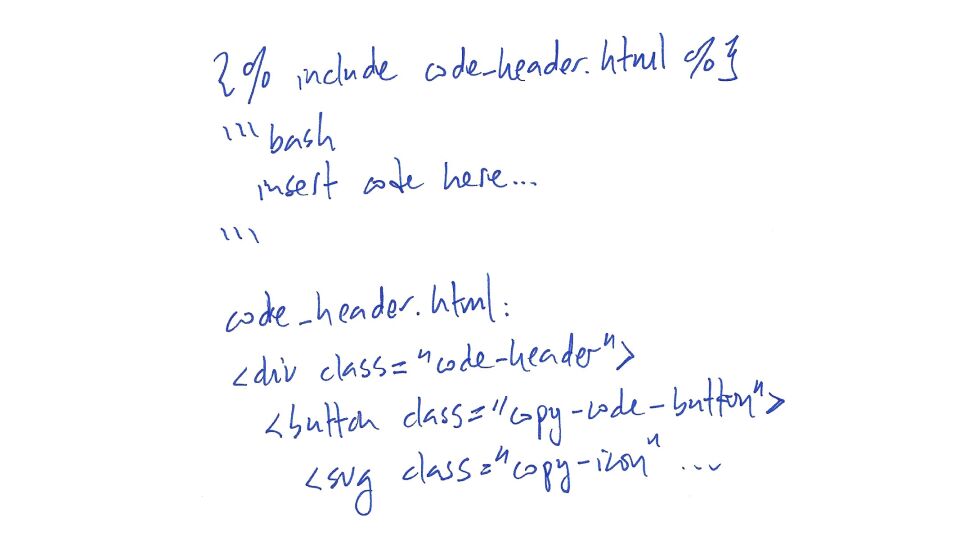 {% include code_header.html %}
```bash
insert code here...
```
code_header.html:
<div class="code-header">
<button class="copy-code-button">
<svg class="copy-icon" ...